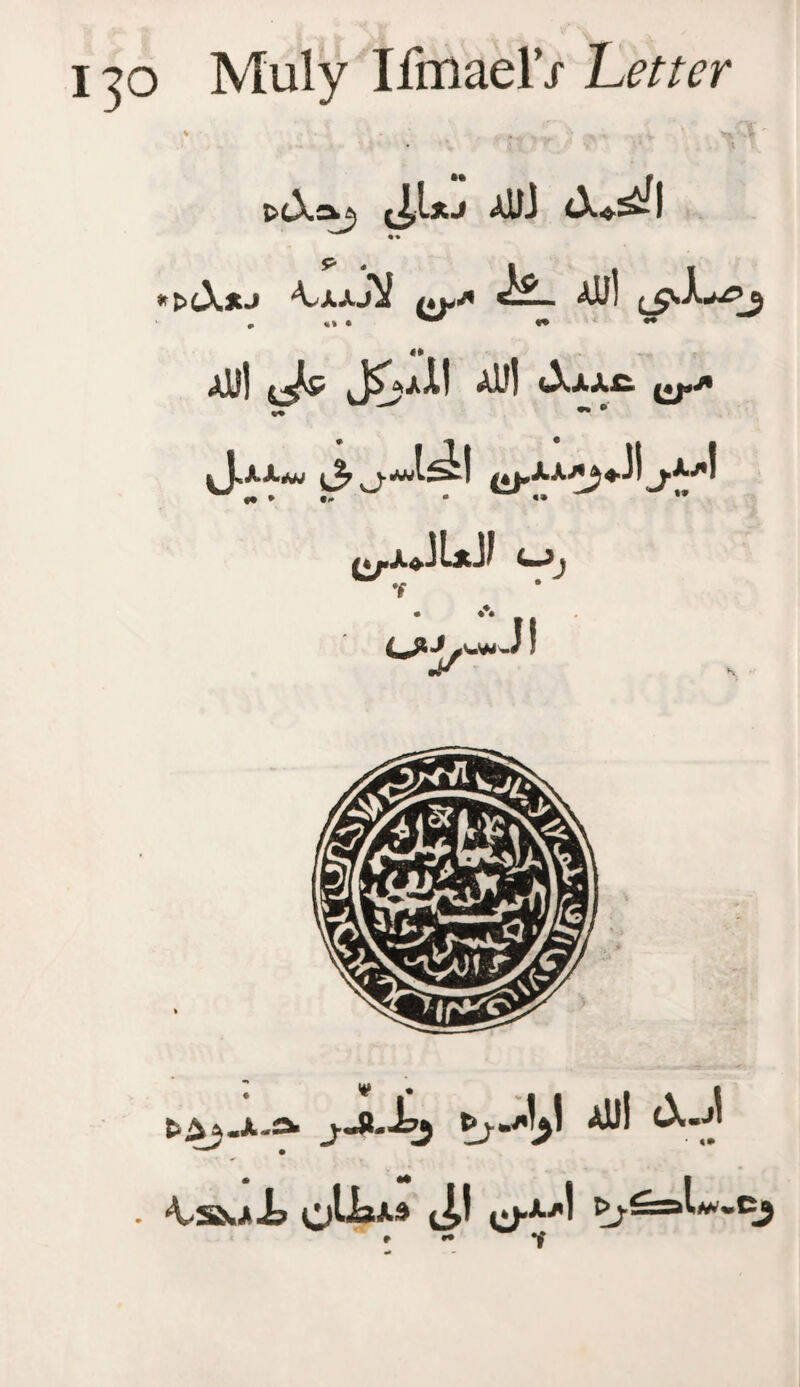 130 Muly Iſmael's Letter
الحمد لله تعالى وحده
وصلى الله على من لا نبي بعده
من عبد الله المتوكل على الله
امير المومنين المجاهد في سبيل
رب العالمين
الشريف
ايد الله اوامره وظفر جنوده
وعساكره امين الى قبطان طنجة